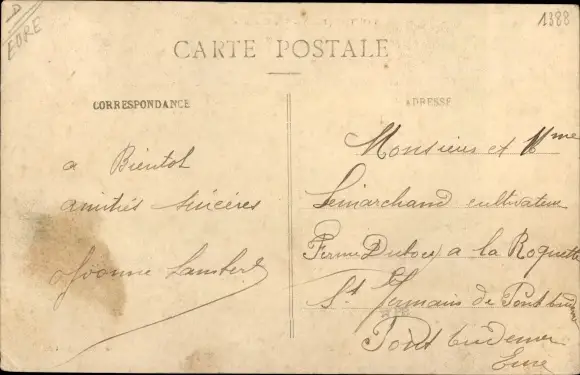 D
EURE
1388
CARTE POSTALE
CORRESPONDANCE
ADRESSE
a Bientot
amitiés sincères
Yvonne Lambert
Monsieur et Mme
Lemarchand cultivateur
Ferme Duboc a la Roquette
St Germain de Pont Audemer
Pont Audemer
Eure